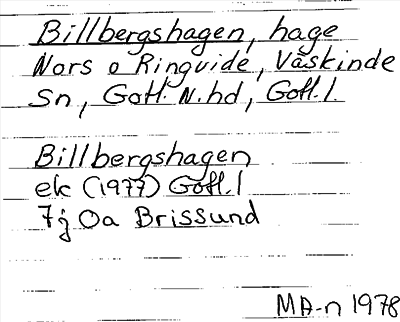 Billbergshagen, hage
Nors o Ringvide, Väskinde
Sn, Gotl. N. hd, Gotl. l.
Billbergshagen
ek (1977) Gotl. l
7j Oa Brissund
MA-n 1978